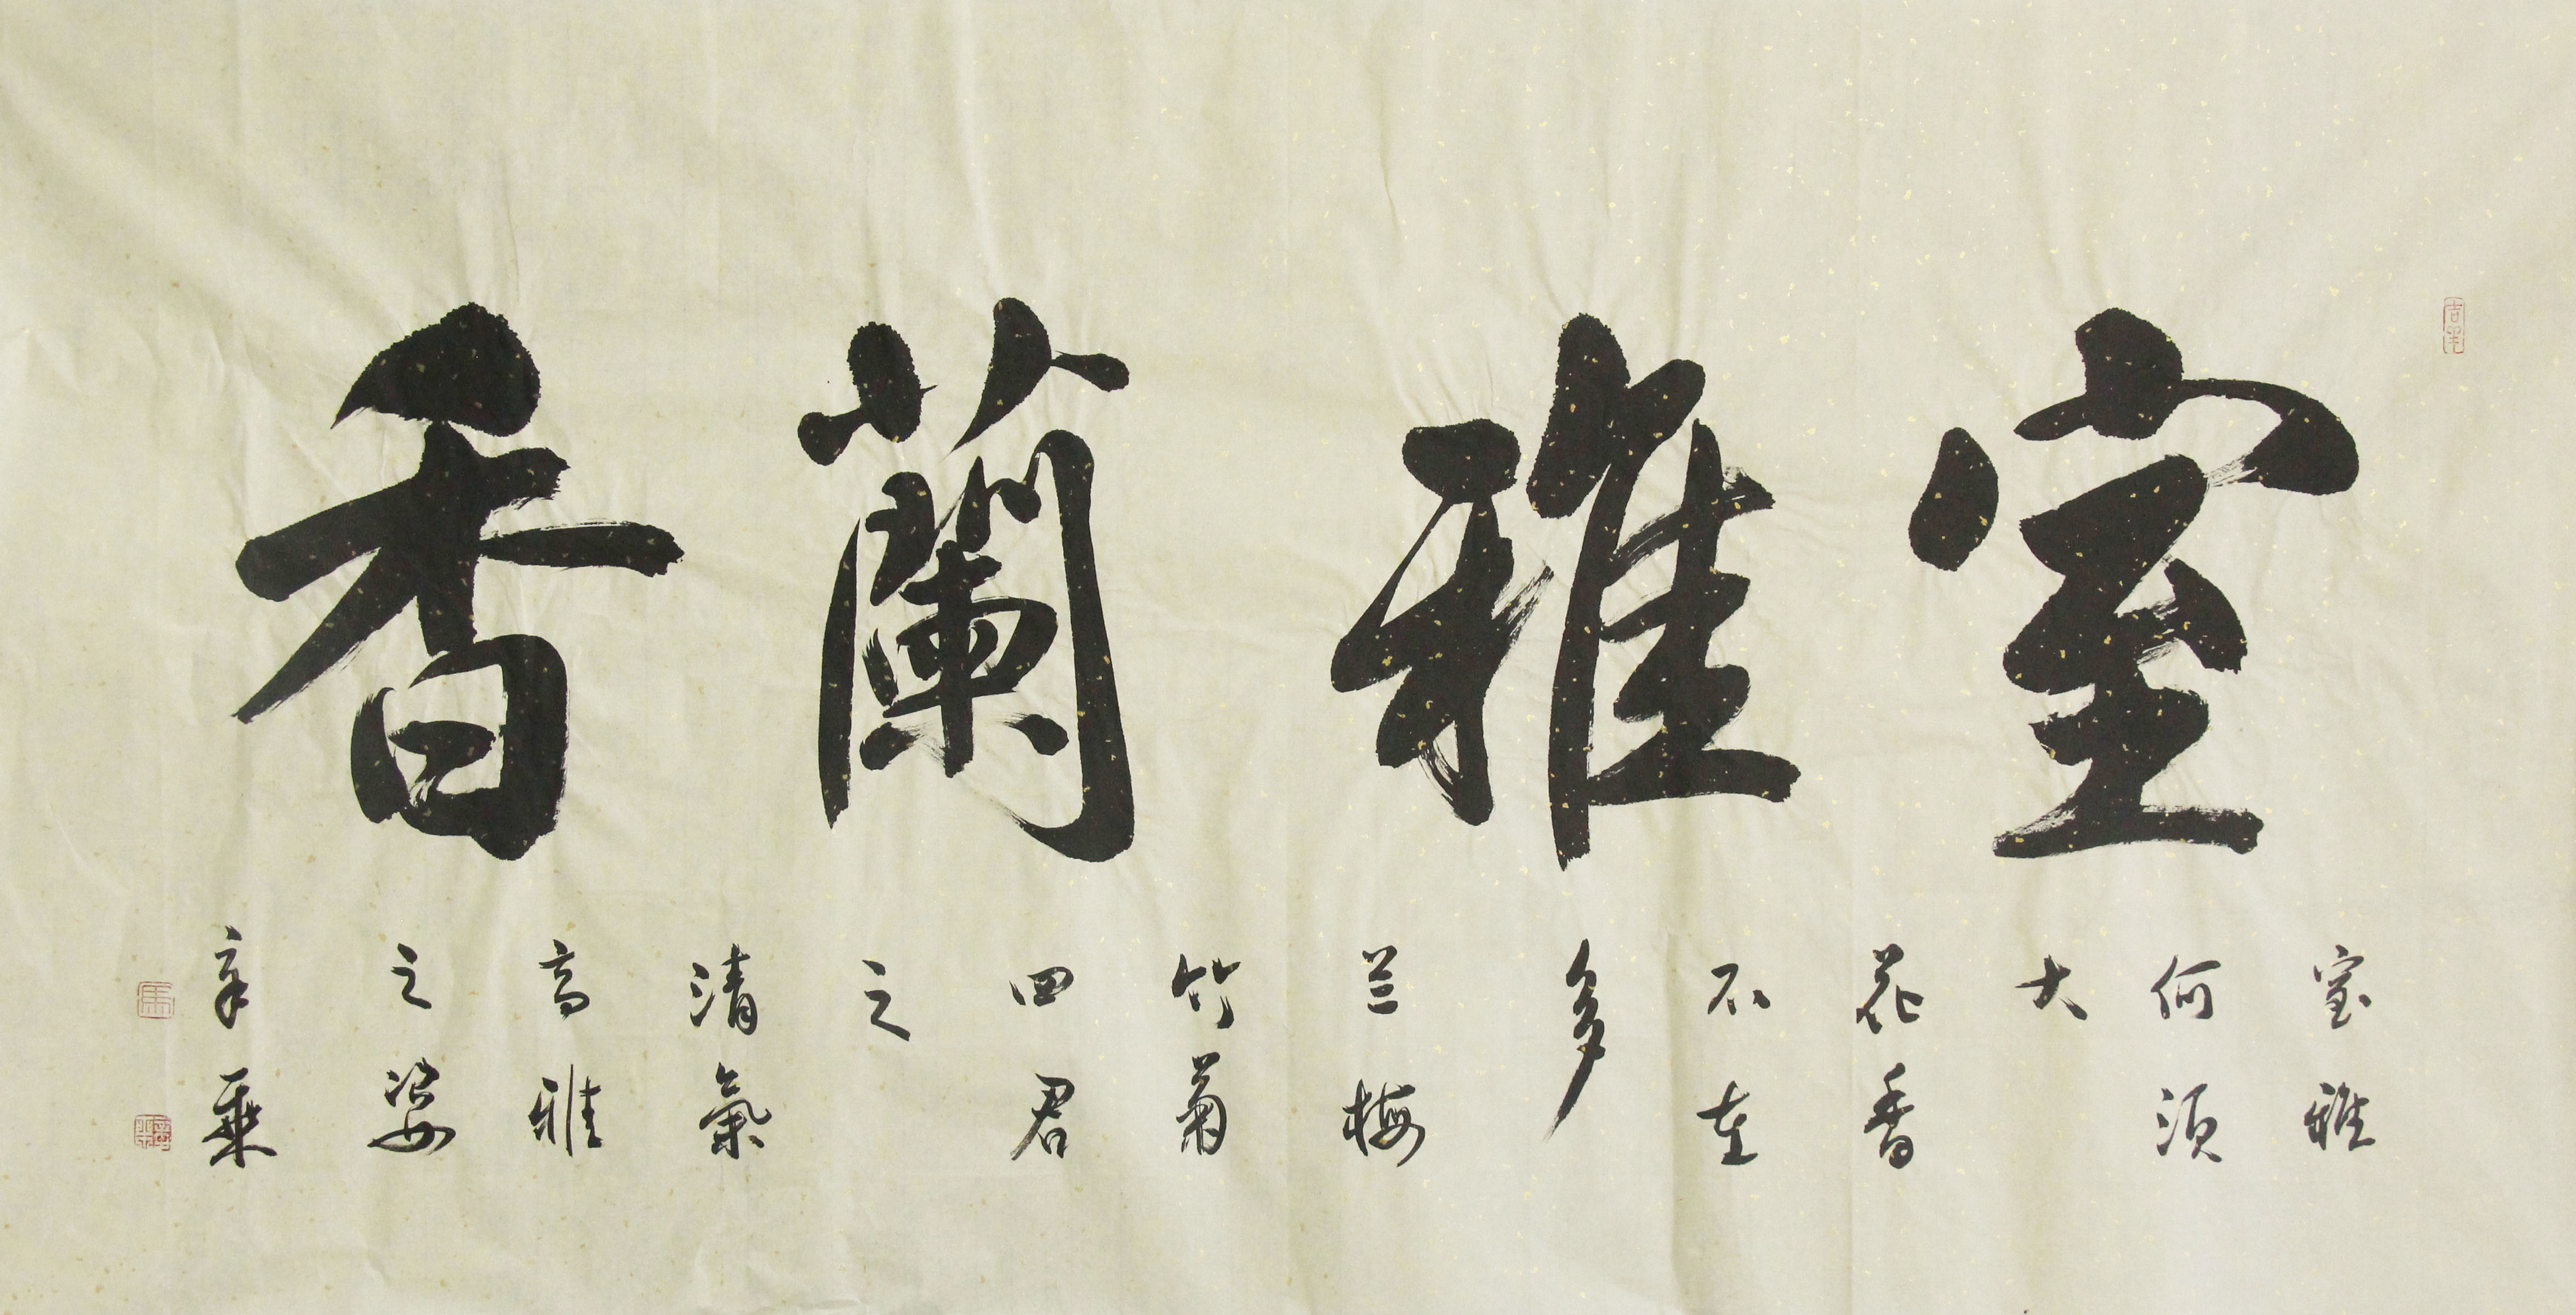 室雅蘭香
吉羊
室雅
何須
大
花香
不在
多
兰梅
竹菊
四君
之
清氣
高雅
之姿
馬